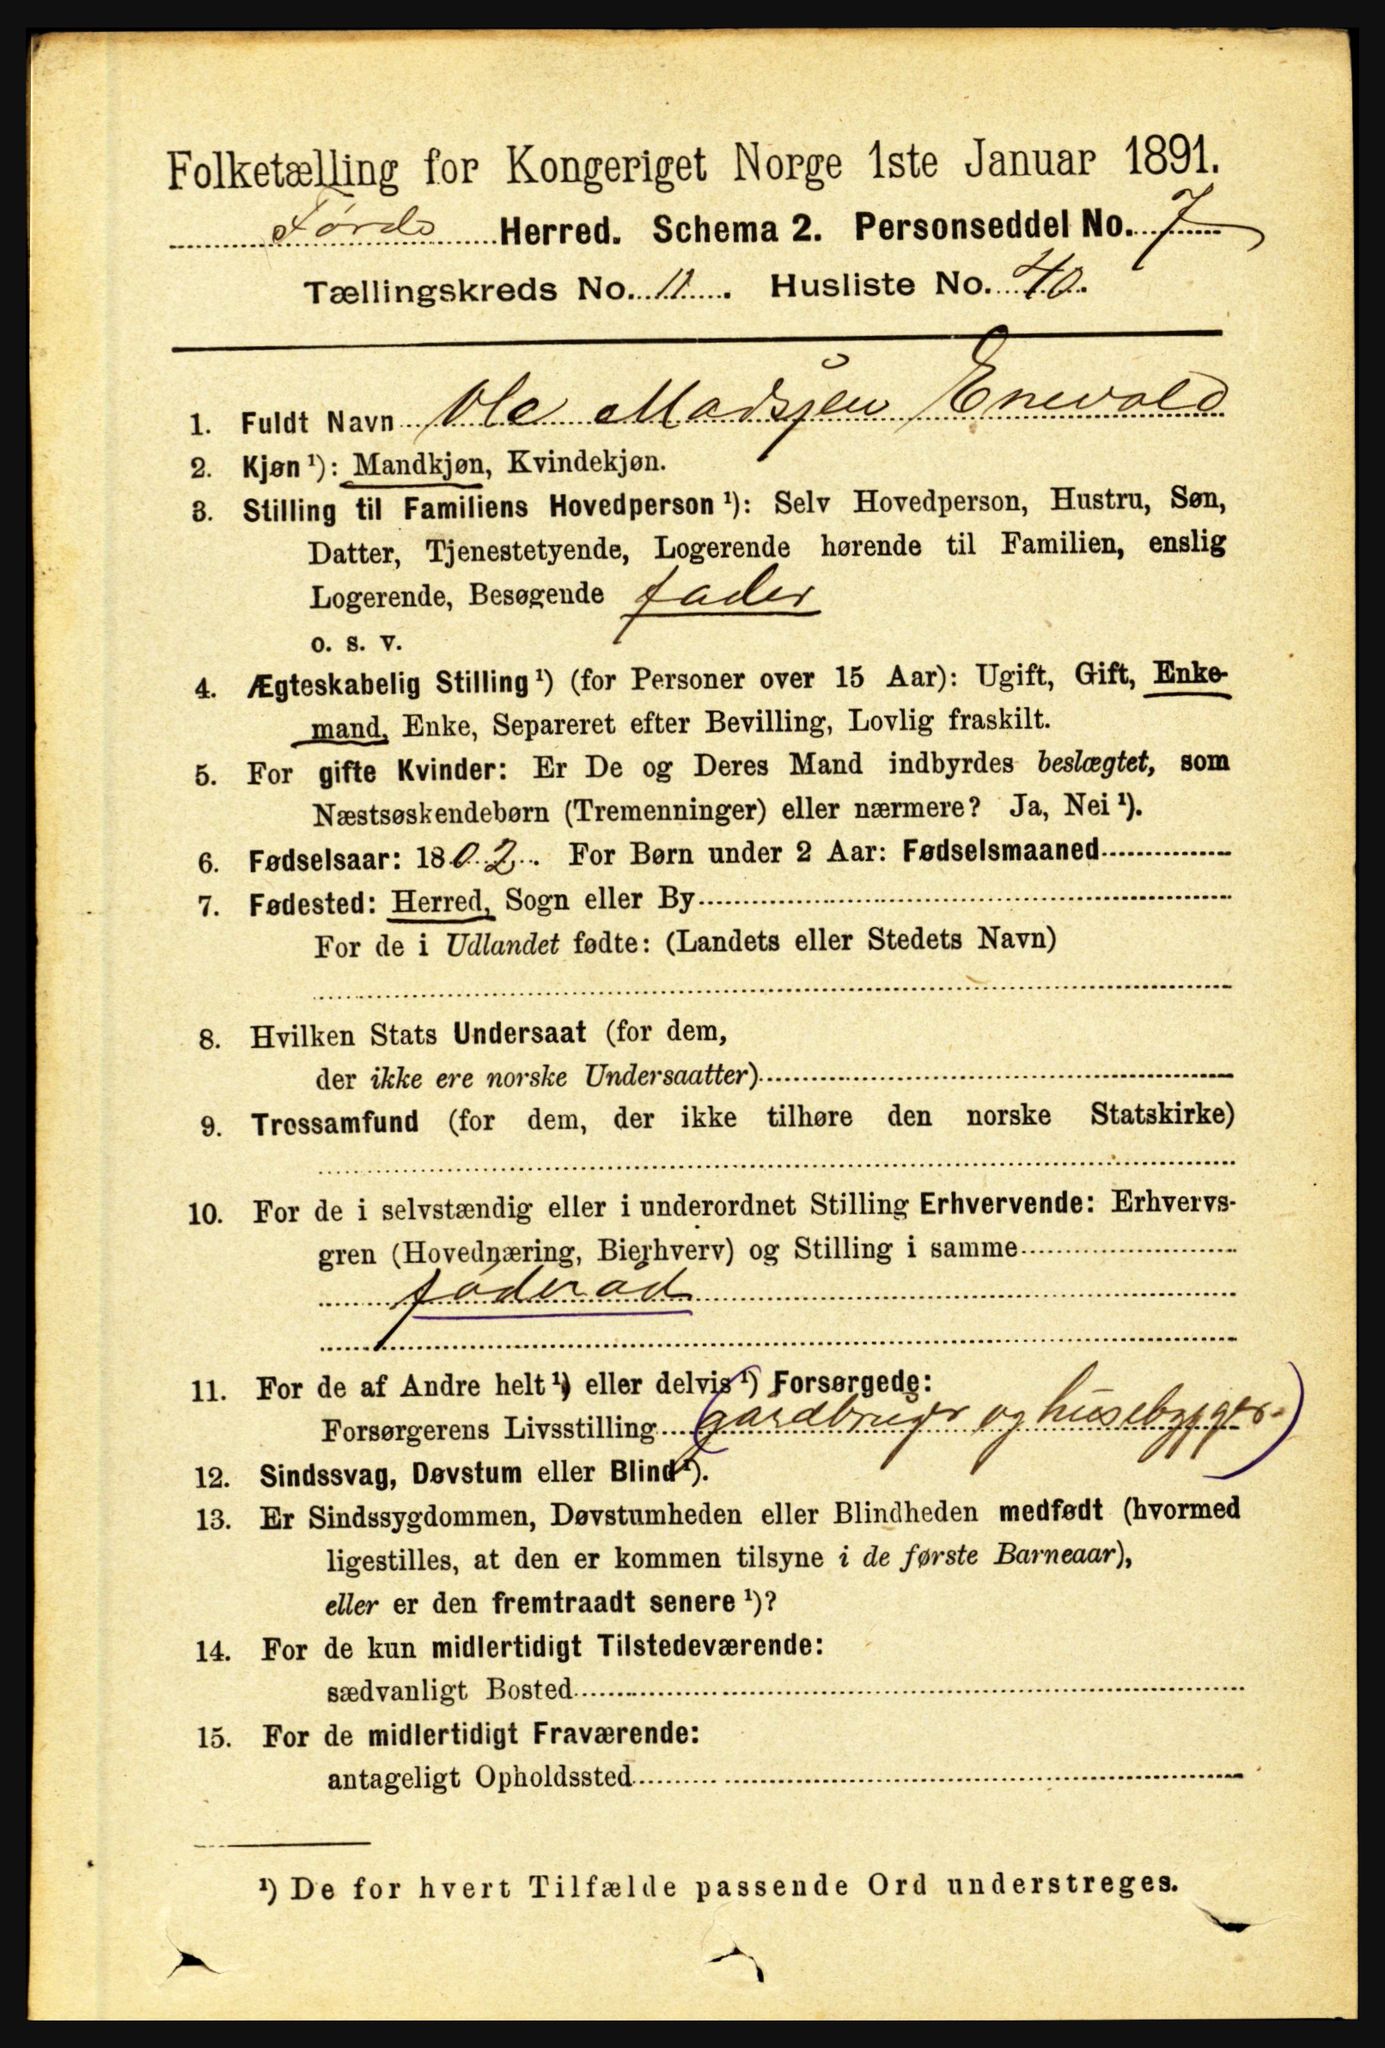 Folketælling for Kongeriget Norge 1ste Januar 1891.
Førde Herred. Schema 2. Personseddel No. 7
Tællingskreds No. 11. Husliste No. 40.
1. Fuldt Navn Ole Madsjen Enevold
2. Kjøn ¹): Mandkjøn, Kvindekjøn.
3. Stilling til Familiens Hovedperson ¹): Selv Hovedperson, Hustru, Søn,
Datter, Tjenestetyende, Logerende hørende til Familien, enslig
Logerende, Besøgende fader
o. s. v.
4. Ægteskabelig Stilling ¹) (for Personer over 15 Aar): Ugift, Gift, Enke-
mand, Enke, Separeret efter Bevilling, Lovlig fraskilt.
5. For gifte Kvinder: Er De og Deres Mand indbyrdes beslægtet, som
Næstsøskendebørn (Tremenninger) eller nærmere? Ja, Nei ¹).
6. Fødselsaar: 1802. For Børn under 2 Aar: Fødselsmaaned
7. Fødested: Herred, Sogn eller By
For de i Udlandet fødte: (Landets eller Stedets Navn)
8. Hvilken Stats Undersaat (for dem,
der ikke ere norske Undersaatter)
9. Trossamfund (for dem, der ikke tilhøre den norske Statskirke)
10. For de i selvstændig eller i underordnet Stilling Erhvervende: Erhvervs-
gren (Hovednæring, Bierhverv) og Stilling i samme
føderåd
11. For de af Andre helt ¹) eller delvis ¹) Forsørgede:
Forsørgerens Livsstilling (gårdbruger og husebygger.)
12. Sindssvag, Døvstum eller Blind ¹).
13. Er Sindssygdommen, Døvstumheden eller Blindheden medfødt (hvormed
ligestilles, at den er kommen tilsyne i de første Barneaar),
eller er den fremtraadt senere ¹)?
14. For de kun midlertidigt Tilstedeværende:
sædvanligt Bosted
15. For de midlertidigt Fraværende:
antageligt Opholdssted
¹) De for hvert Tilfælde passende Ord understreges.